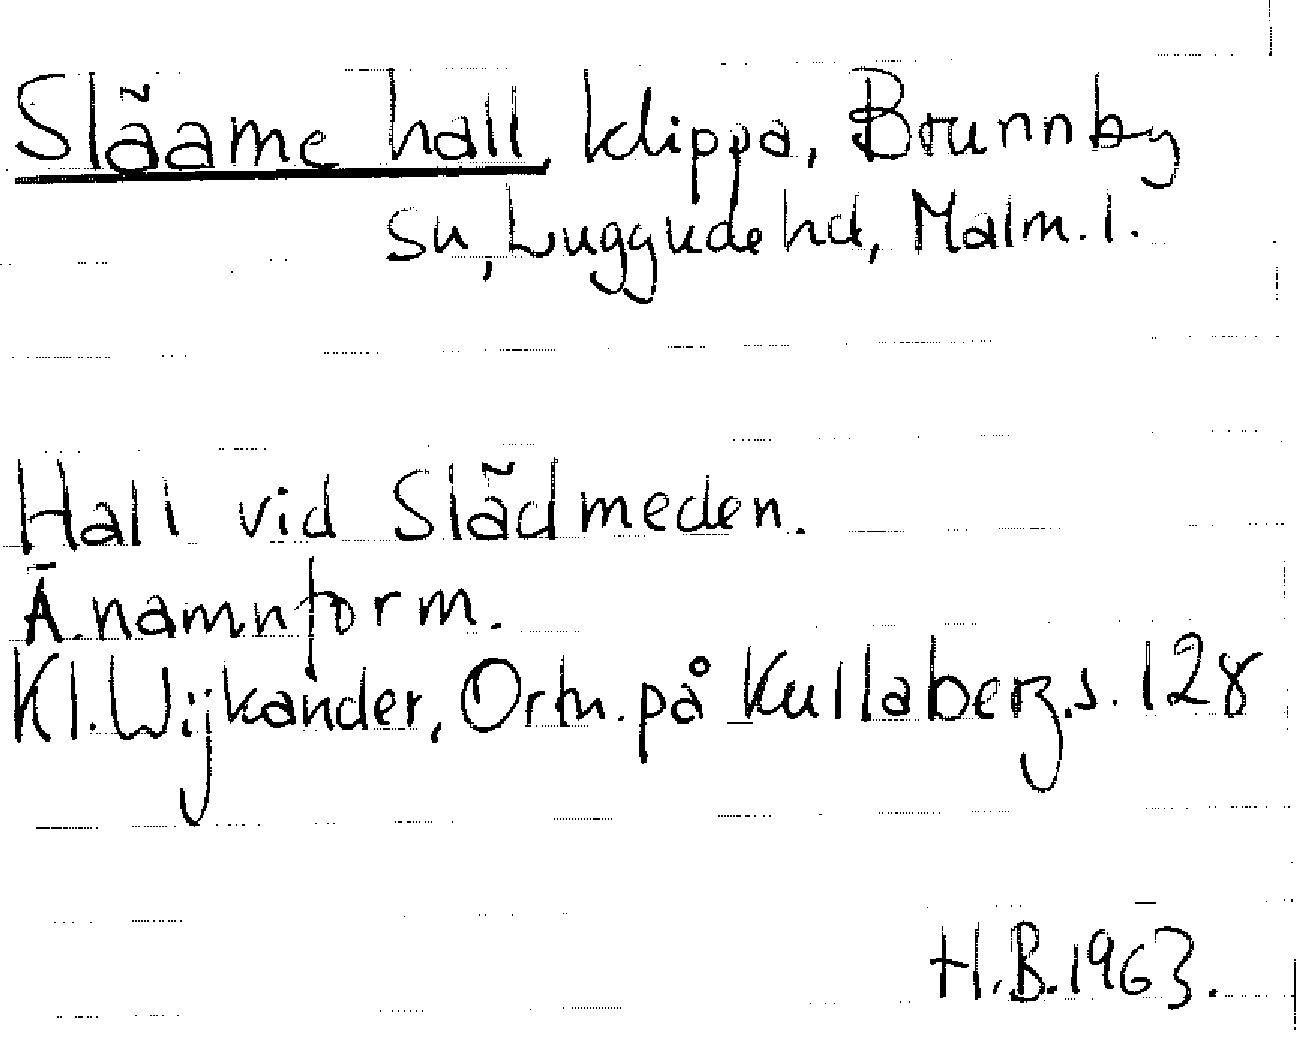 Släame hall, klippa, Brunnby
sn, Luggude hd, Malm. l.
Hall vid Slädmeden.
Ä. namnform.
Kl. Wijkander, Ortn. på Kullaberg. s. 128
H.B. 1963.